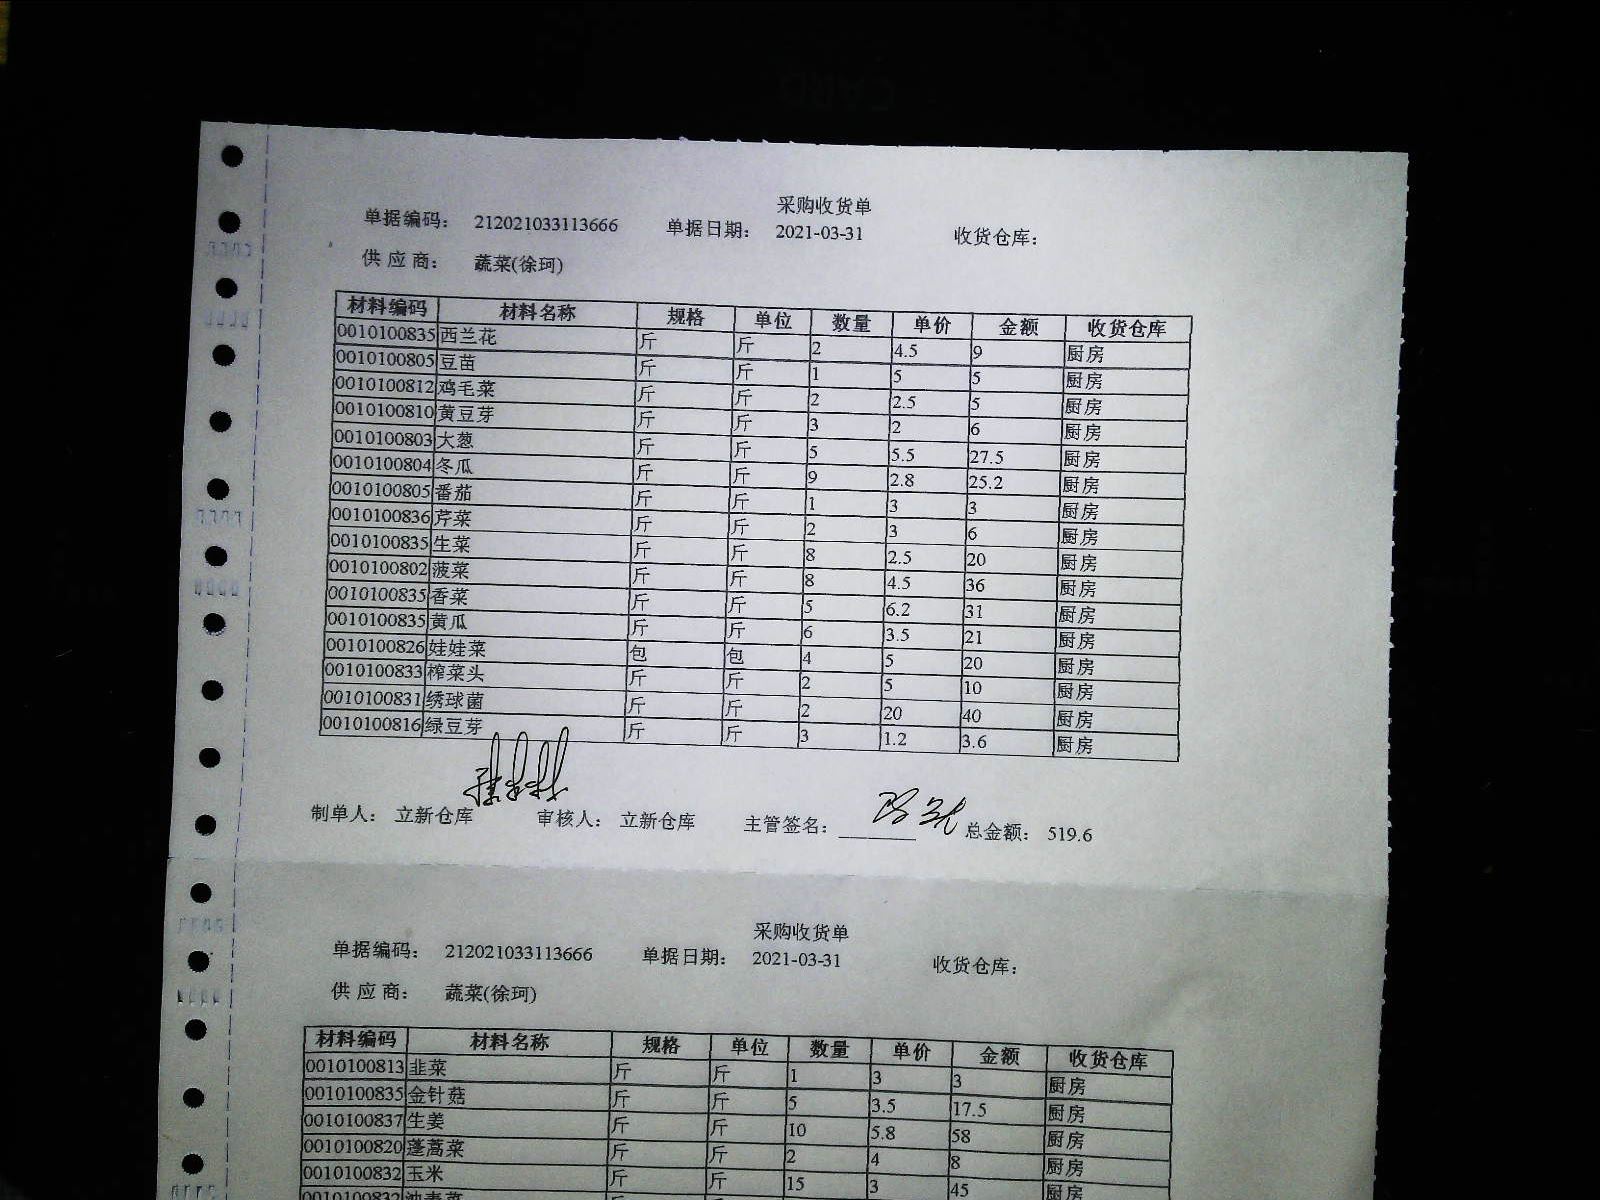 CARD
采购收货单
单据编码： 212021033113666 单据日期： 2021-03-31 收货仓库：
供 应 商： 蔬菜(徐珂)
材料编码 材料名称 规格 单位 数量 单价 金额 收货仓库
0010100835 西兰花 斤 斤 2 4.5 9 厨房
0010100805 豆苗 斤 斤 1 5 5 厨房
0010100812 鸡毛菜 斤 斤 2 2.5 5 厨房
0010100810 黄豆芽 斤 斤 3 2 6 厨房
0010100803 大葱 斤 斤 5 5.5 27.5 厨房
0010100804 冬瓜 斤 斤 9 2.8 25.2 厨房
0010100805 番茄 斤 斤 1 3 3 厨房
0010100836 芹菜 斤 斤 2 3 6 厨房
0010100835 生菜 斤 斤 8 2.5 20 厨房
0010100802 菠菜 斤 斤 8 4.5 36 厨房
0010100835 香菜 斤 斤 5 6.2 31 厨房
0010100835 黄瓜 斤 斤 6 3.5 21 厨房
0010100826 娃娃菜 包 包 4 5 20 厨房
0010100833 榨菜头 斤 斤 2 5 10 厨房
0010100831 绣球菌 斤 斤 2 20 40 厨房
0010100816 绿豆芽 斤 斤 3 1.2 3.6 厨房
制单人： 立新仓库 审核人： 立新仓库 主管签名： 总金额： 519.6
采购收货单
单据编码： 212021033113666 单据日期： 2021-03-31 收货仓库：
供 应 商： 蔬菜(徐珂)
材料编码 材料名称 规格 单位 数量 单价 金额 收货仓库
0010100813 韭菜 斤 斤 1 3 3 厨房
0010100835 金针菇 斤 斤 5 3.5 17.5 厨房
0010100837 生姜 斤 斤 10 5.8 58 厨房
0010100820 蓬蒿菜 斤 斤 2 4 8 厨房
0010100832 玉米 斤 斤 15 3 45 厨房